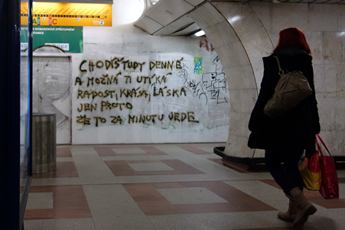 CHODÍŠ TUDY DENNĚ
A MOŽNÁ TI UTÍKÁ
RADOST, KRÁSA, LÁSKA
JEN PROTO
ŽE TO ZA MINUTU JEDE.